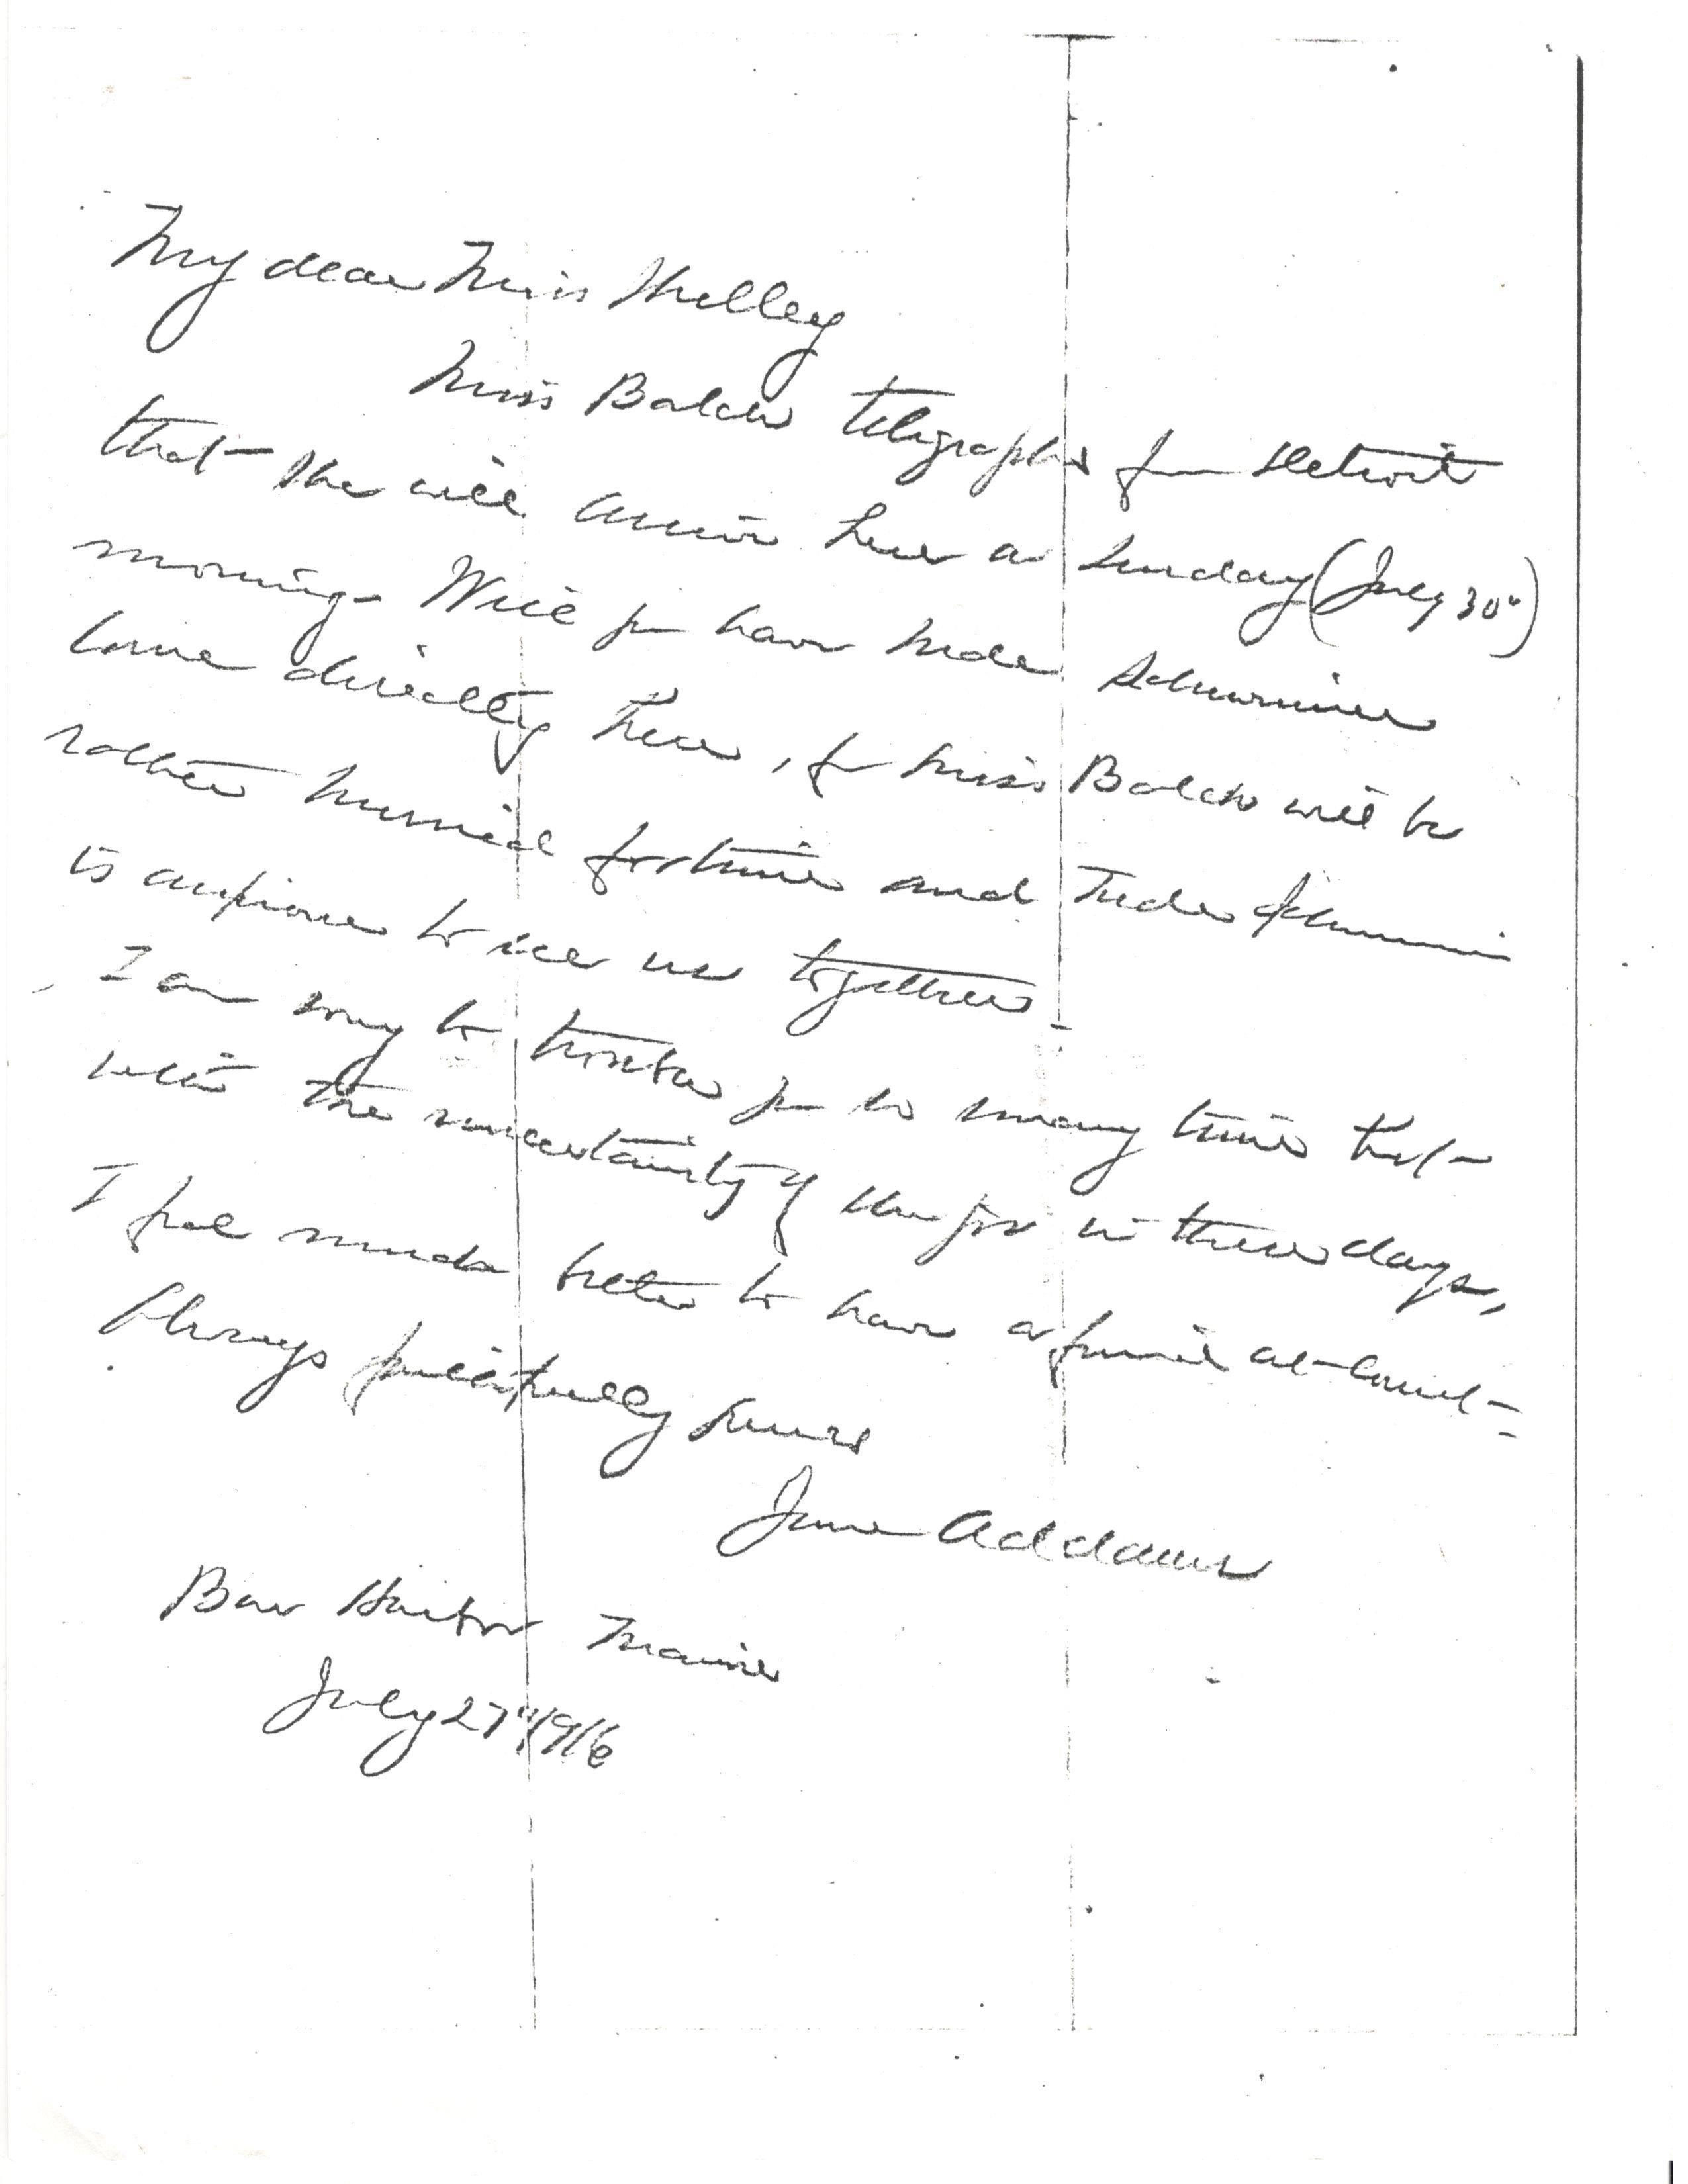 My dear Miss Shelley
Miss Balch telegraphs from Detroit
that she will arrive here on Sunday (July 30")
morning. Will you have Mde Schwimmer
come directly here, for Miss Balch will be
rather hurried for time and Mde Schwimmer
is anxious to see us together.
I am sorry to trouble you so many times but
with the uncertainty of the in these days,
I feel much better to have a friend at court—
Always faithfully yours
Jane Addams
Bar Harbor Maine
July 27" 1916